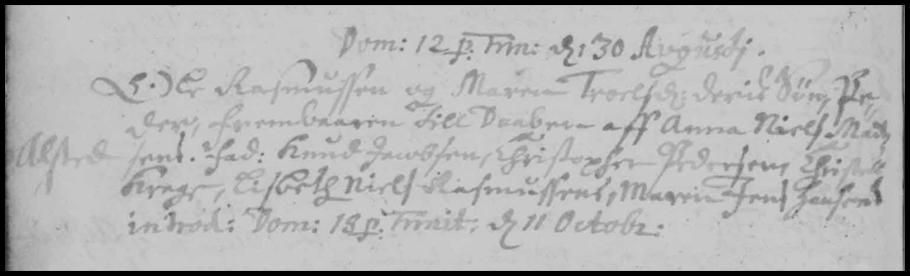 Dom: 12 p. Trin: d: 30 Augustj.
L. Ole Rasmussen og Maren Troelsd: deris Søn Pe,
der, frembaaren till Daaben aff Anna Niels Mad,
Alsted sens. Fad: Knud Jacobsen, Christopher Pedersen, Christen
Krage, Lisbeth Niels Rasmussens, Maren Jens Hansens
introd: Dom: 18 p. Trinit: d 11 Octobr: